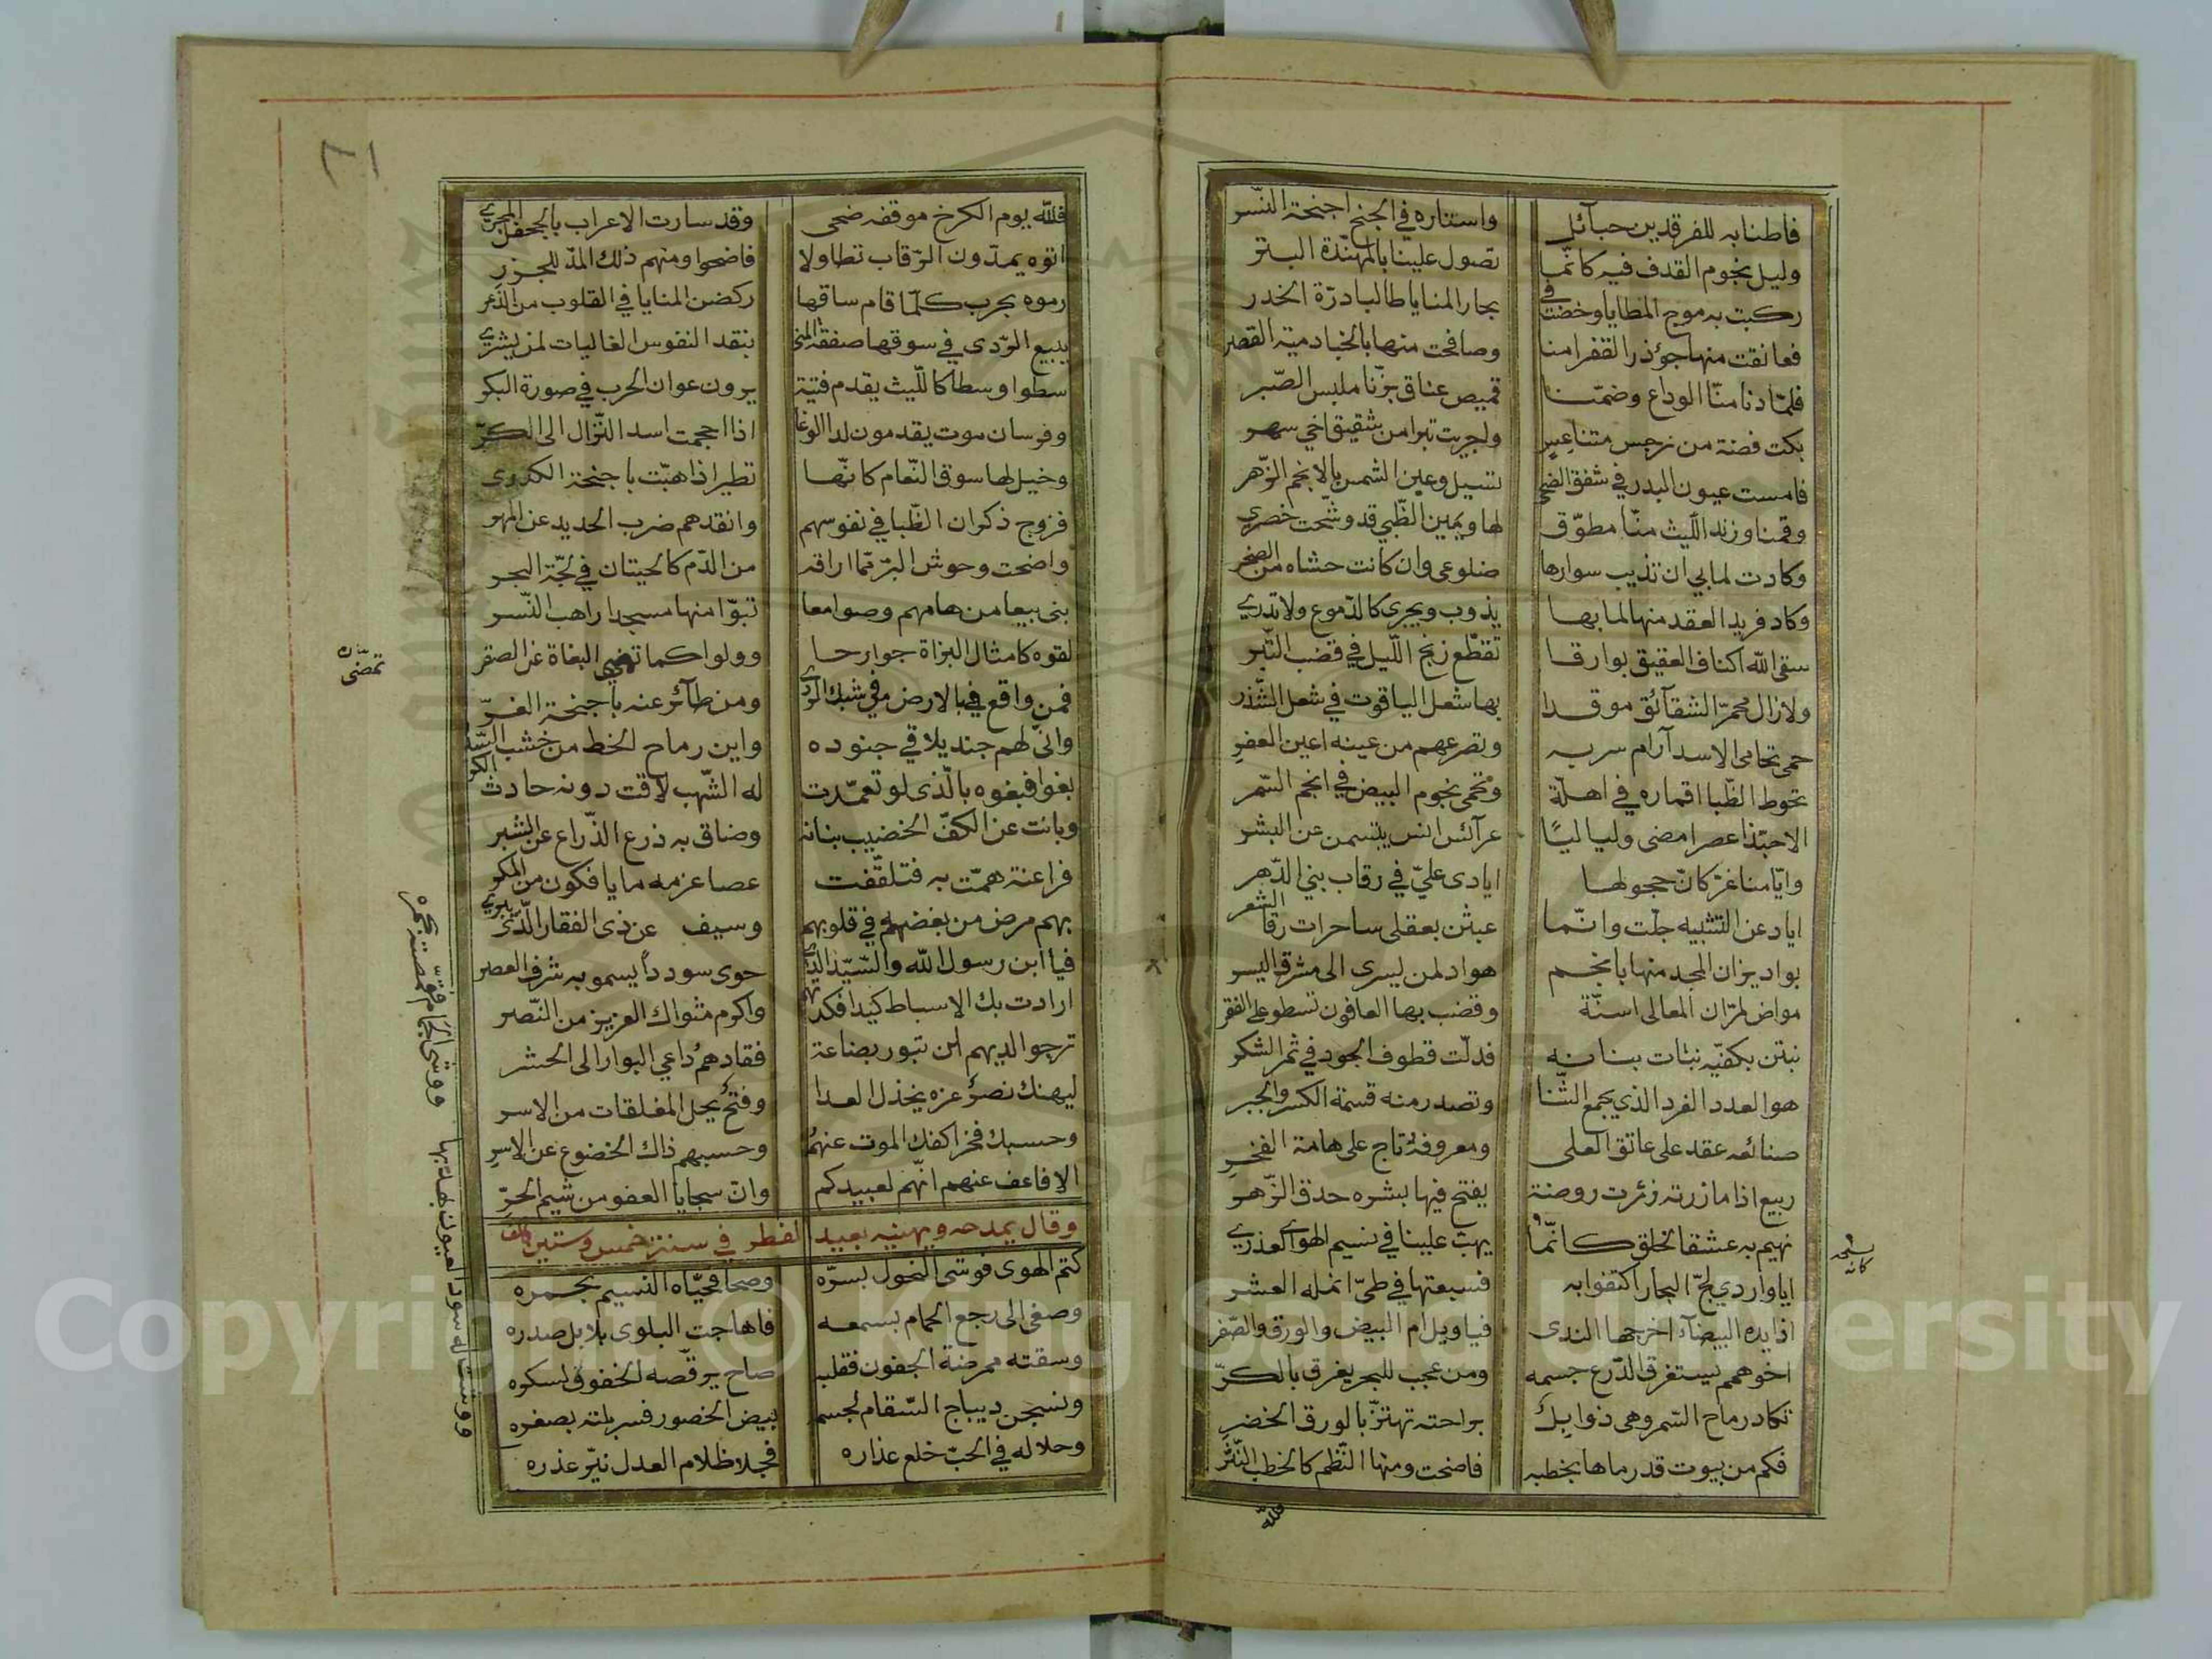 فاطنابه للفرقدين حبآئل واستاره في الجنح اجنحة النّسر
وليل نجوم القدف فيه كانّما تصول علينا بالمهنّدة البتر
ركبت به موج المطايا وخضت في بحار المنايا طالبا درّة الخدر
فعانقت منها جؤذر القفر امنا وصافحت منها بالخبا دمية القصر
فلمّا دنا منّا الوداع وضمّنا قميص عناق بزّنا ملبس الصّبر
بكت فضة من نرجس متناعس واجريت تبرا من شقيق اخي سهر
فامست عيون البدر في شفق الضحى تسيل وعين الشمس بالانجم الزّهر
وقمنا وزند اللّيث منّا مطوّق لها ويمين الظّبي قد وشّحت خصري
وكادت لما بي ان تذيب سوارها ضلوعي وان كانت حشاه من الصّخر
وكاد فريد العقد منها لما بها يذوب ويجري كالدّموع ولا تدري
سقى اللّه اكناف العقيق بوارقا تقطّع زنج اللّيل في قضب التّبر
ولا زال محمرّ الشقآئق موقدا بها شعل الياقوت في شعل الشّذر
حمى تحامى الاسد آرام سربه وتصرعهم من عينه اعين العفر
تحوط الظّبا اقماره في اهلّة وتحمى نجوم البيض في انجم السّمر
الا حبّذا عصرا مضى ولياليًا عرآئس انس يبتسمن عن البشر
وايّامنا غرّ كانّ حجولها ايادى عليّ في رقاب بني الدّهر
اياد عن التّشبيه جلّت وانّما عبثن بعقلى ساحرات رقا الشعر
بواد يزان المجد منها بانجم هواد لمن يسرى الى مشرق اليسر
مواض لمرّان المعالى اسنّة وقضب بها العافون تسطو على الفقر
نبتن بكفّيه نبات بنانه فدلّت قطوف الجود في ثمر الشكر
هو العدد الفرد الذي يجمع الثّنا وتصدر منه قسمة الكسر والجبر
صنائعه عقد على عاتق العلى ومعروفهُ تاج على هامة الفخر
ربيع اذا ما زرته زئرت روضة يفتح فيها بشره حدق الزّهر
نهيم به عشقا لخلق كانّما يهبّ علينا في نسيم الهوى العذري
ايا واردي لجّ البحار اكتفوا به فسبعتها في طيّ انمله العشر
اذا يده البيضآء اخرجها الندى فيا ويل ام البيض والورق والصّفر
اخو همم يستغرق الدّرع جسمه ومن عجب للبحر يغرق بالكرّ
تكاد رماح السّمر وهى ذوابل براحته تهتزّ بالورق الخضر
فكم من بيوت قد رماها بخطبه فاضحت ومنها النّظم كالخطب النّثر
فللّه
فللّه يوم الكرخ موقفه ضحى وقد سارت الاعراب بالجحفل المجر
اتوه يمدّون الرّقاب تطاولا فاضحوا ومنهم ذلك المدّ للجزر
رموه بحرب كلّما قام ساقها ركضن المنايا في القلوب من الذّعر
يبيع الرّدى في سوقها صفقة المنى بنقد النفوس الغاليات لمن يشري
سطوا وسطا كاللّيث يقدم فتية يرون عوان الحرب في صورة البكر
وفرسان موت يقدمون لدا الوغا اذا احجمت اسد النّزال الى الكرّ
وخيل لها سوق النّعام كانّها تطير اذا هبّت باجنحة الكدرى
فزوج ذكران الظّبا في نفوسهم وانقدهم ضرب الحديد عن المهر
واضحت وحوش البرّ ممّا اراقه من الدّم كالحيتان في لجّة البحر
بنى بيعا من هامهم وصوامعا تبوّا منها مسجدا راهب النّسر
لقوه كامثال البزاة جوارحا وولوا كما تمضي البغاة عن الصقر
فمن واقع في الارض في شبك الرّدى ومن طآئر عنه باجنحة الفرّ
وانّى لهم جند يلاقي جنوده واين رماح الخط من خشب السّدر
بغوا فبغوه بالّذي لو تعمّدت له الشّهب لاقت دونه حادث الكر
وبانت عن الكفّ الخضيب بنانه وضاق به ذرع الذّراع عن الشبر
فراعنة همّت به فتلقّفت عصا عزمه ما يافكون من المكر
بهم مرض من بغضهم في قلوبهم وسيف عن ذى الفقار الّذى يبري
فيا ابن رسول اللّه والسّيّد الّذي حوى سودداً يسمو به شرف العصر
ارادت بك الاسباط كيدا فكدتهم واكرم مثواك العزيز من النّصر
ترجو الديهم ان تبور بضاعة فقادهمُ داعي البوار الى الحشر
ليهنك نصرٌ عزه يخذل العدا وفتحٌ يحل المغلقات من الاسر
وحسبك فخرا كفك الموت عنهمُ وحسبهم ذاك الخضوع عن الاسر
الا فاعف عنهم انّهم لعبيدكم وانّ سجايا العفو من شيم الحرّ
وقال يمدحه ويهنيه بعيد الفطر في سنة خمس وستين والف
كتم الهوى فوشى النحول بسرّه وصحا فحيّاه النسيم بخمره
وصغى الى رجع الحمام بسمعه فاهاجت البلوى بلابل صدره
وسقته ممرضة الجفون فقلبه صاح يرقّصه الخفوق لسكره
ونسجن ديباج السّقام لجسمه بيض الخصور فسربلته بصفره
وحلا له في الحبّ خلع عذاره فجلا ظلام العدل نيّر عذره
Copyright © King Saud University